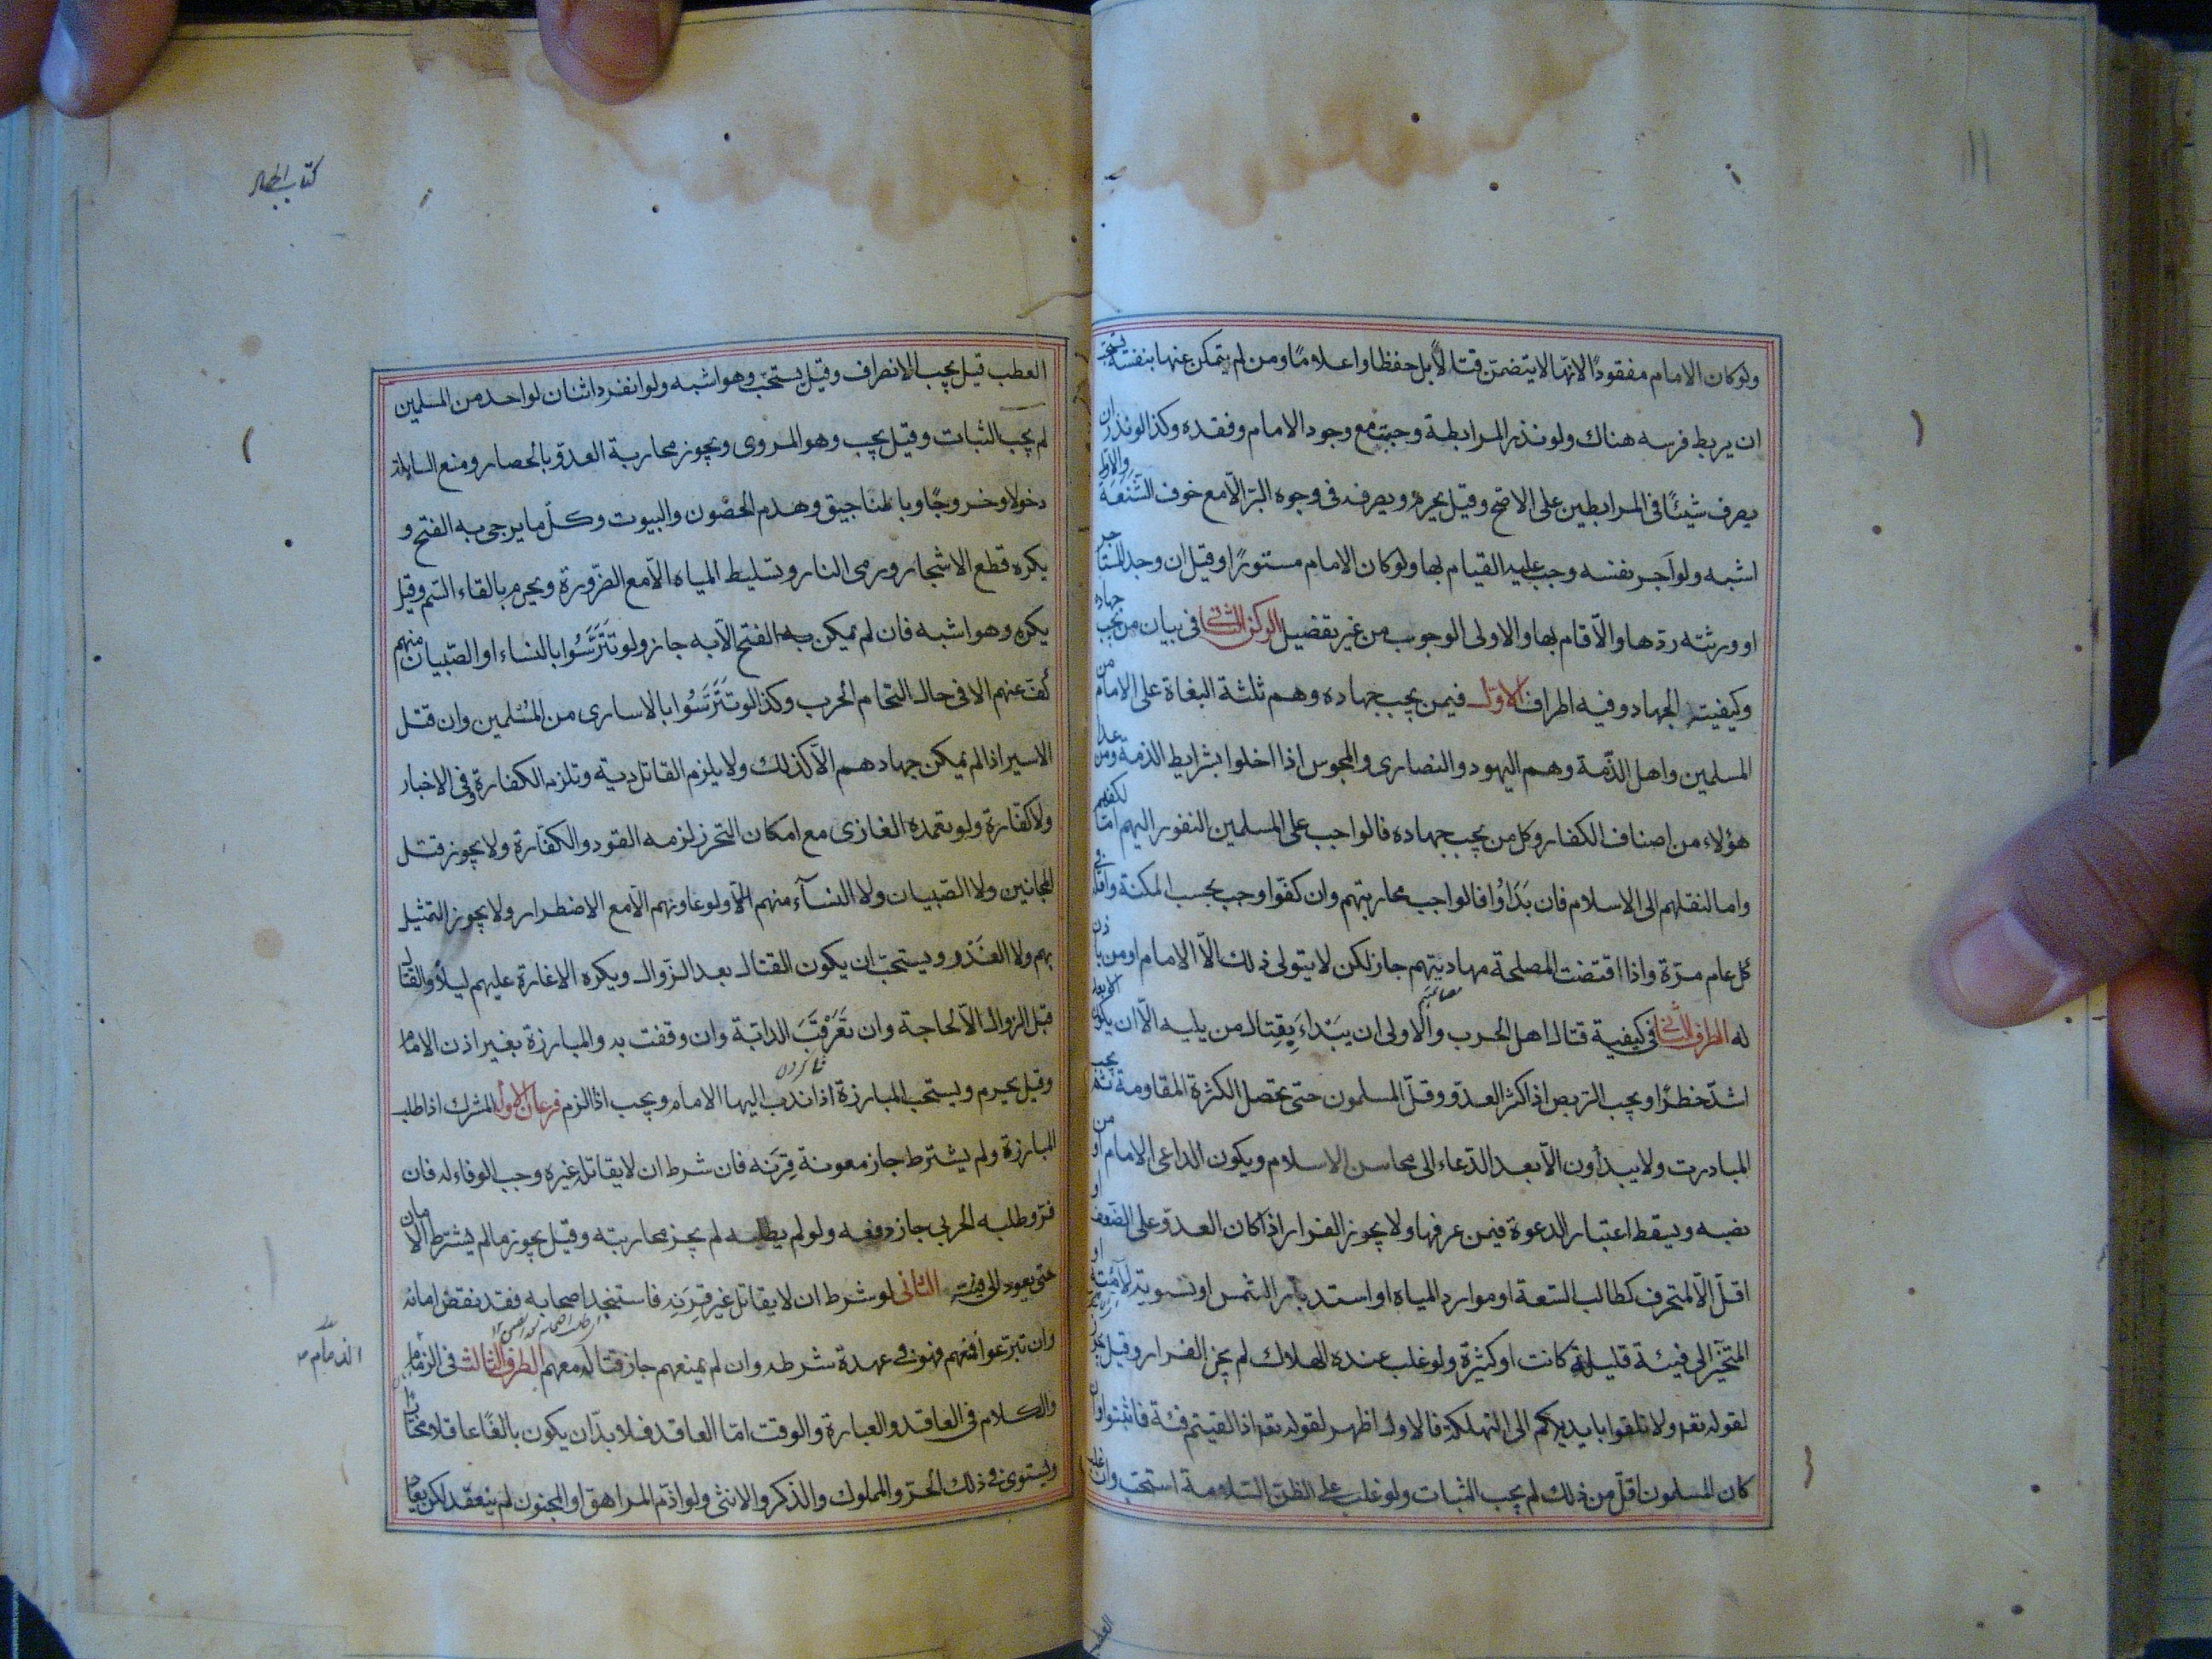 ولو كان الامام مفقودًا لانها لا يتضمن قتالًا بل حفظا واعلامًا ومن لم يتمكن منها بنفسه يستحب
ان يربط فرسه هناك ولو نذر المرابطة وجبت مع وجود الامام وفقده وكذا لو نذر ان
يصرف شيئًا فى المرابطين على الاصح وقيل يحرم ويصرفه فى وجوه البر الا مع خوف الشنعة والاول
اشبه ولو آجر نفسه وجب عليه القيام بها ولو كان الامام مستورًا وقيل ان وجد المستاجر
او ورثته ردها والا قام بها والاولى الوجوب من غير تفضيل الركن الثانى فى بيان من يجب جهاده
وكيفية الجهاد وفيه اطراف الاول فيمن يجب جهاده وهم ثلثة البغاة على الامام من
المسلمين واهل الذمة وهم اليهود والنصارى والمجوس اذا اخلوا بشرايط الذمة ومن عدا
هؤلاء من اصناف الكفار وكل من يجب جهاده فالواجب على المسلمين النفور اليهم اما لكفهم
واما لنقلهم الى الاسلام فان بَدَاوُا فالواجب محاربتهم وان كفوا وجب بحسب المكنة واقله فى
كل عام مرة واذا اقتضت المصلحة مهادنتهم جاز لكن لا يتولى ذلك الا الامام او من ياذن
له الطرف الثانى فى كيفية قتال اهل الحرب والاولى ان يبداء بقتال من يليه الا ان يكون الابعد
اشد خطرًا ويجب التربص اذا كثر العدو وقل المسلمون حتى تحصل الكثرة المقاومة ثم يجب
المبادرت ولا يبدأون الا بعد الدعاء الى محاسن الاسلام ويكون الداعى الامام او من
نصبه ويسقط اعتبار الدعوة فيمن عرفها ولا يجوز الفرار اذا كان العدو على الضعف او
اقل الا لمتحرف كطالب السعة او موارد المياه او استدبار الشمس او تسوية لامته او
المتحيز الى فيئة قليلة كانت او كثيرة ولو غلب عنده الهلاك لم يجز الفرار وقيل يجوز
لقوله تعه ولا تلقوا بايديكم الى التهلكة فالاول اظهر لقوله تعه اذا لقيتم فئة فاثبتوا وان
كان المسلمون اقل من ذلك لم يجب الثبات ولو غلب على الظن السلامة استحب وان غلب
العطب
كتاب الجهاد
العطب قيل يجب الانصراف وقيل يستحب وهو اشبه ولو انفرد اثنان لواحد من المسلمين
لم يجب الثبات وقيل يجب وهو المروى ويجوز محاربة العدو بالحصار ومنع السابلة
دخولا وخروجًا وبالمناجيق وهدم الحصون والبيوت وكل ما يرجى به الفتح و
يكره قطع الاشجار ورمى النار وتسليط المياه الا مع الضرورة ويحرم بالقاء السم وقيل
يكره وهو اشبه فان لم يمكن به الفتح الا به جاز ولو تَتَرَّسُوا بالنساء او الصبيان منهم
كُفّ عنهم الا فى حال التحام الحرب وكذا لو تَتَرَّسُوا بالاسارى من المسلمين وان قتل
الاسير اذا لم يمكن جهادهم الا كذلك ولا يلزم القاتل دية وتلزمه الكفارة وفى الاخبار
ولا كفارة ولو تعمده الغازى مع امكان التحرز لزمه القود والكفارة ولا يجوز قتل
المجانين ولا الصبيان ولا النسآء منهم ولو عاونهم الا مع الاضطرار ولا يجوز التمثيل
بهم ولا الغَدْر ويستحب ان يكون القتال بعد الزوال ويكره الاغارة عليهم ليلًا والقتال
قبل الزوال الا لحاجة وان تُعَرْقَبَ الدابة وان وقفت به والمبارزة بغير اذن الامام
وقيل يحرم ويستحب المبارزة اذا ندب اليها الامام ويجب اذا لزم فرعان الاول المشرك اذا طلب
المبارزة ولم يشترط جاز معونة قِرْنه فان شرط ان لا يقاتله غيره وجب الوفاء له فان
فر وطلبه الحربى جاز دفعه ولو لم يطلبه لم يجز محاربته وقيل يجوز ما لم يشترط الامان
حتى يعود الى فيئته الثانى لو شرط ان لا يقاتل غير قِرْنِه فاستنجد اصحابه فقد نقض امانه
وان تبرعوا فمنعهم فهو فى عهدة شرطه وان لم يمنعهم جاز قتاله معهم الطرف الثالث فى الزمام
الذمام
والكلام فى العاقد والعبارة والوقت اما العاقد فلا بد ان يكون بالغًا عاقلا مختارًا
ويستوى فى ذلك الحر والمملوك والذكر والانثى ولو اذم المراهق او المجنون لم ينعقد لكن يعاد